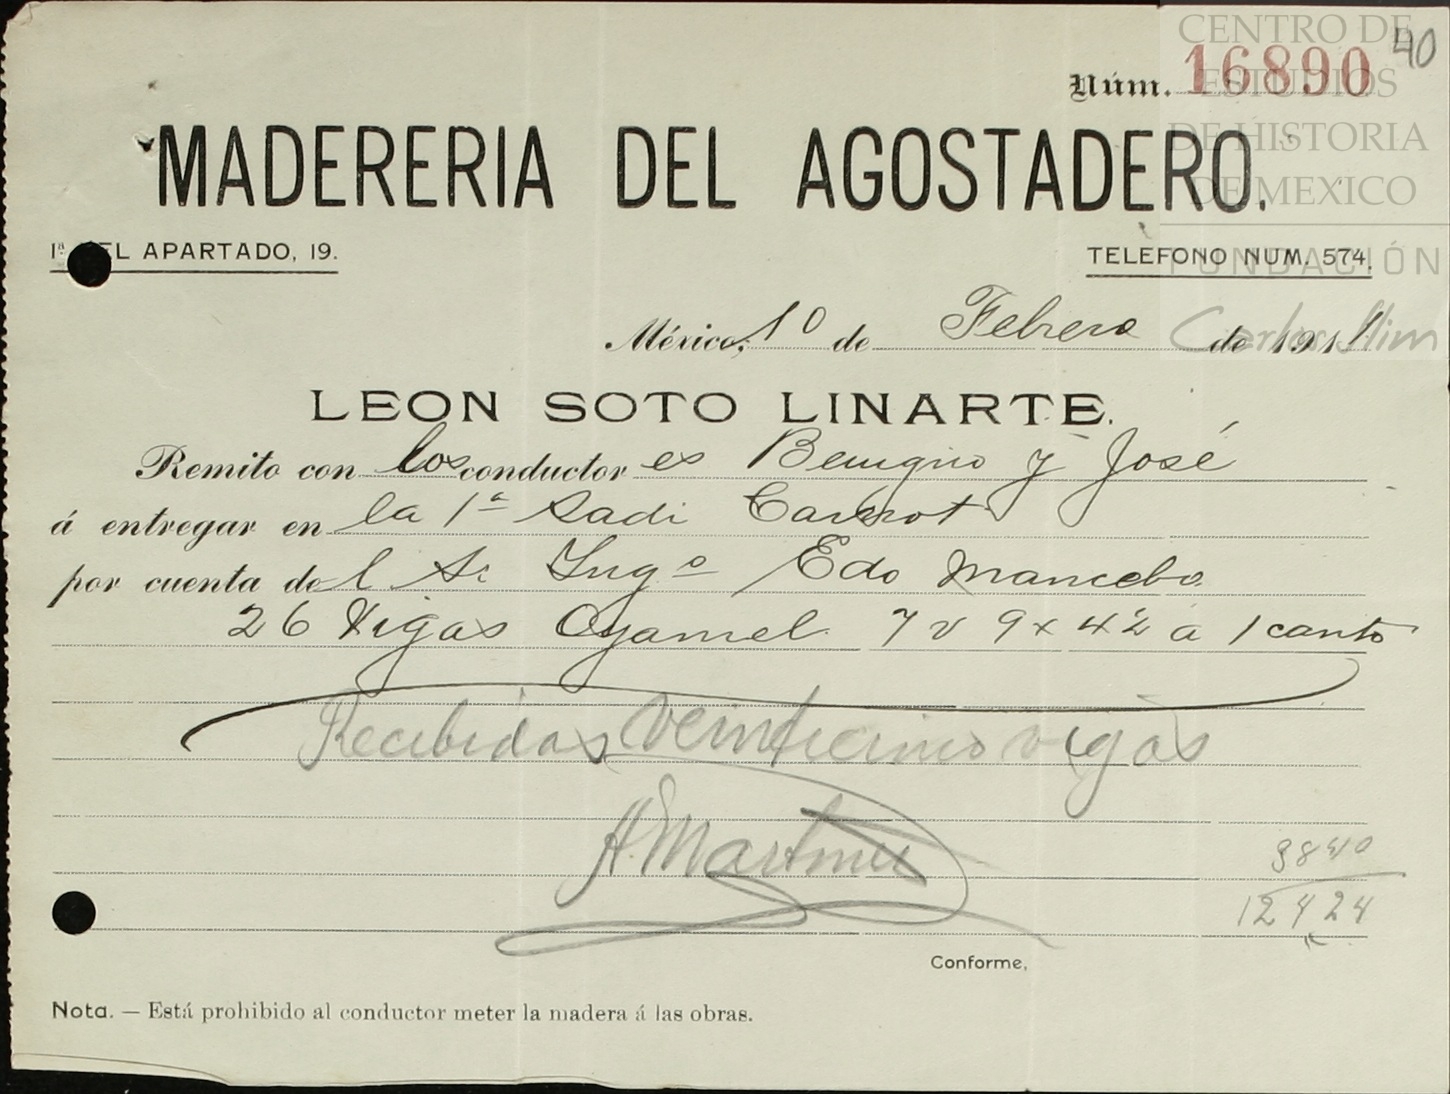 40
CENTRO DE
ESTUDIOS
DE HISTORIA
DE MEXICO
FUNDACIÓN
Carlos Slim
Núm. 16890
MADERERIA DEL AGOSTADERO.
1ª EL APARTADO, 19.
TELEFONO NUM. 574.
México, 10 de Febrero de 1911
LEON SOTO LINARTE.
Remito con los conductor es Benigno y José
á entregar en la 1ª Sadi Carnot
por cuenta del Sr Ingº Edo Mancebo
26 Vigas Oyamel 7 v 9 x 4½ a 1 canto
Recibidas veinticinco vigas
A. Martinez
3840
12424
Conforme,
Nota. — Está prohibido al conductor meter la madera á las obras.